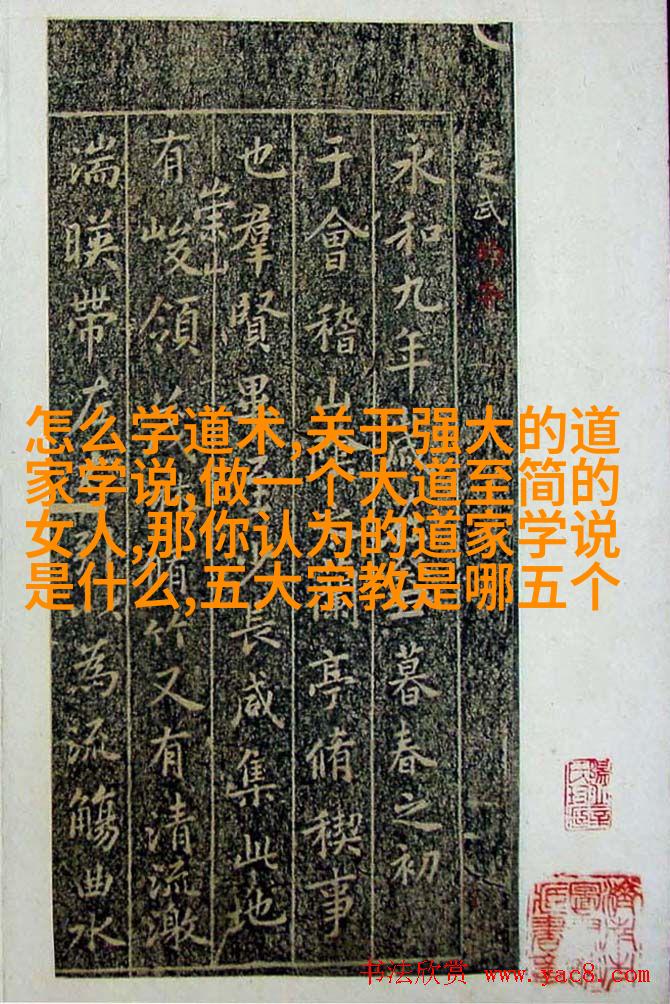 怎么学道术,关于强大的道
家学说,做一个大道至简的
女人,那你认为的道家学说
是什么,五大宗教是哪五个
定武
永和九年歲丑暮春之初
于會稽山蘭亭脩稧事
也羣賢畢至少長咸集此地
崇山
有峻領脩竹又有清流激
湍暎帶左引為流觴曲水
书法欣赏 www.yac8.com